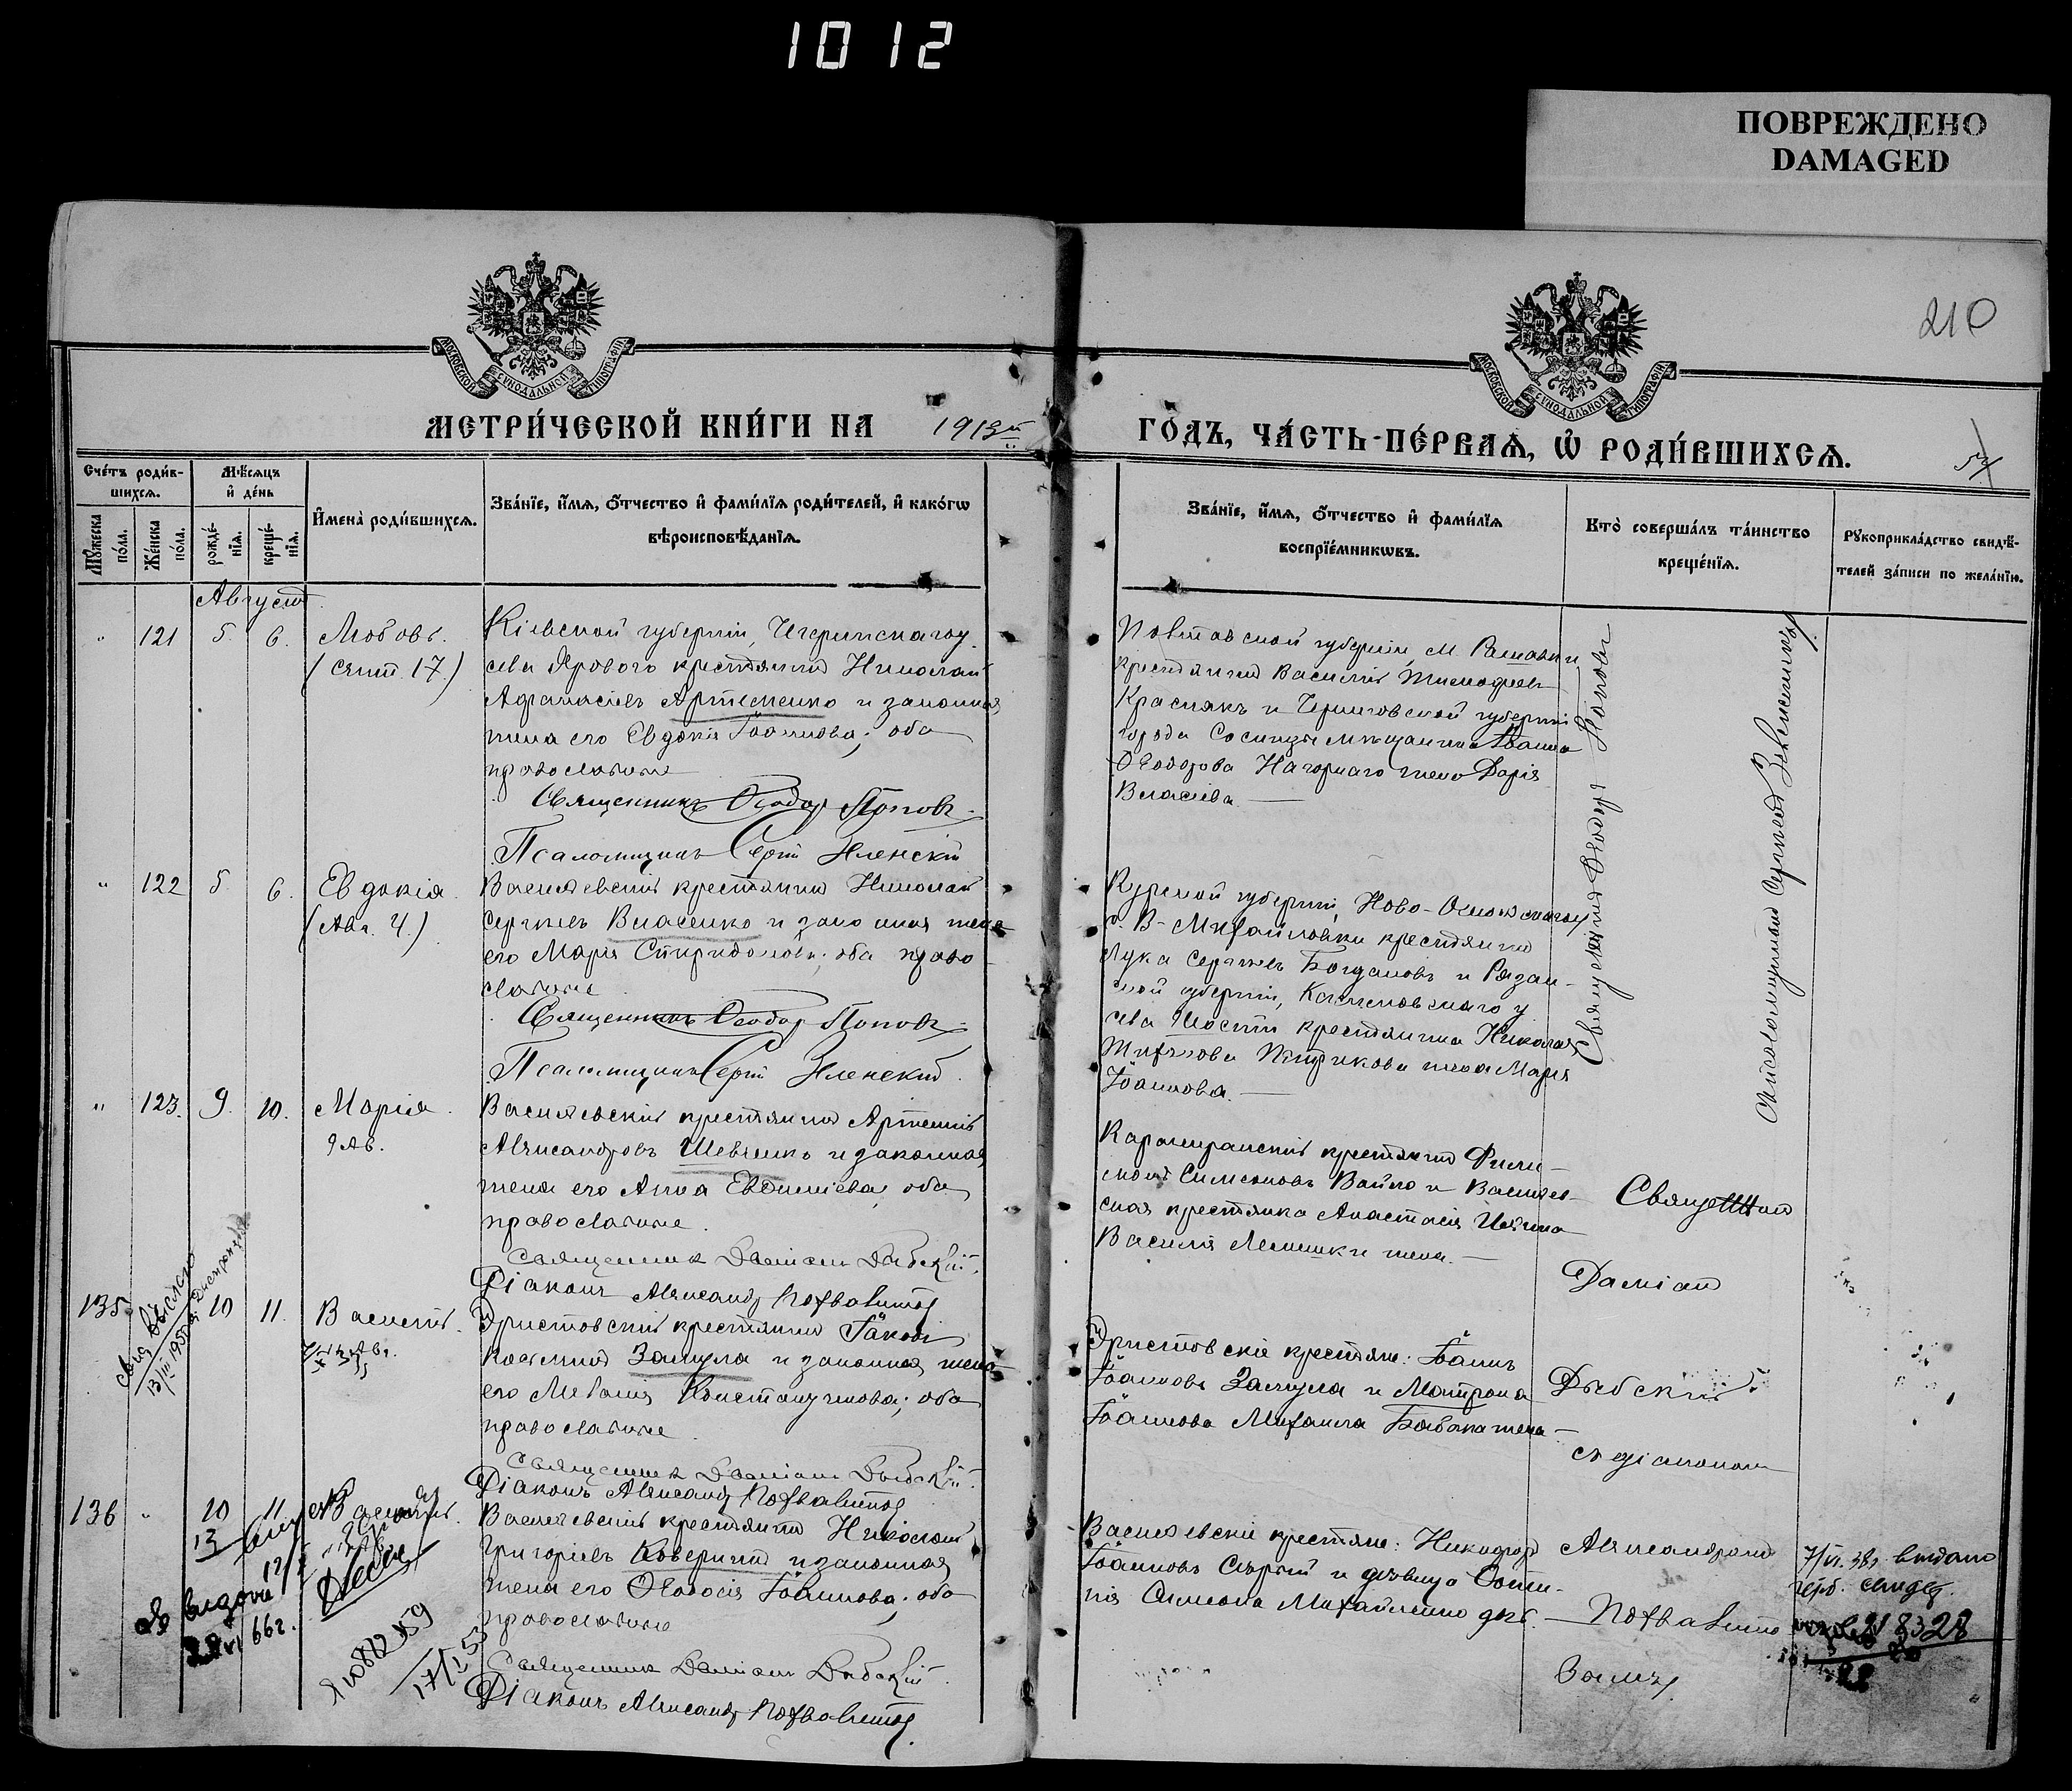 1012
ПОВРЕЖДЕНО
DAMAGED
210
МОСКОВСКОЙ СУНОДАЛЬНОЙ ТИПОГРАФІИ
МОСКОВСКОЙ СУНОДАЛЬНОЙ ТИПОГРАФІИ
МЕТРИ́ЧЕСКОЙ КНИ́ГИ НА 1913й
ГО́ДЪ, ЧА́СТЬ-ПЕ́РВАЯ, Ѡ҆ РОДИ́ВШИХСЯ.
54
Сче́тъ роди́в-
шихся.
Мꙋжеска по́ла.
Же́нска по́ла.
Мѣ́сяцъ
и҆ де́нь
рожде́-
нїя.
креще́-
нїя.
И҆мена̀ роди́вшихся.
Зва́нїе, и҆́мя, ѻ҆́тчество и҆ фами́лїя роди́телей, и҆ како́гѡ
вѣроисповѣ́данїя.
Зва́нїе, и҆́мя, ѻ҆́тчество и҆ фами́лїя
воспрїе́мникѡвъ.
Кто̀ соверша́лъ та́инство
креще́нїя.
Рꙋкоприкла́дство свидѣ́-
телей за́писи по жела́нїю.
Августъ
" 121 5. 6. Любовь.
(сент. 17.)
Кіевской губерніи, Чигиринскаго у.
села Ярового крестьянинъ Николай
Афанасіевъ Артеменко и законная
жена его Евдокія Іоаннова; оба
православные
Священникъ Ѳеодоръ Поповъ
Псаломщикъ Сергій Зленскій
Полтавской губерніи, м. Рашевки
крестьянинъ Василій Тимофеевъ
Краснякъ и Черниговской губерніи
города Сосницы мѣщанина Іоанна
Ѳеодорова Нагорнаго жена Дарія
Власіева.
Священникъ Ѳеодоръ Поповъ
съ псаломщикомъ Сергіемъ Зленскимъ
" 122 5. 6. Евдокія.
(Авг. 4.)
Васильевскій крестьянинъ Николай
Сергѣевъ Власенко и законная жена
его Марія Спиридонова; оба право-
славные
Священникъ Ѳеодоръ Поповъ
Псаломщикъ Сергій Зленскій
Курской губерніи, Ново-Оскольскаго у.
с. В-Михайловки крестьянинъ
Лука Сергѣевъ Богдановъ и Рязан-
ской губерніи, Касимовскаго у.
села Шости крестьянина Николая
жена Марія
Іоаннова.
" 123. 9. 10. Марія.
9 Ав.
Васильевскій крестьянинъ Артемій
Александровъ Шевченко и законная
жена его Анна Евдокіева, оба
православные.
Священникъ Даміанъ Дыбскій
Діаконъ Александръ Похвалитовъ
крестьянинъ Фили-
монъ Симеоновъ Вайло и Васильев-
ская крестьянка Анастасія
Василія Мелешки жена.
Священникъ
Даміанъ
Дыбскій
съ діакономъ
Александромъ
135. 10 11. Василій.
Эристовскій крестьянинъ Іаковъ
Космина Замула и законная жена
его Меланія Константинова; оба
православные
Священникъ Даміанъ Дыбскій
Діаконъ Александръ Похвалитовъ
13/III 1950
Эристовскіе крестьяне: Іоаннъ
Іоанновъ Замула и Матрона
Іоаннова Михаила Бабака жена
136 " 10 11 Василій.
Васильевскій крестьянинъ Николай
Григоріевъ Коверинъ и законная
жена его Ѳеодосія Іоаннова; оба
православные
Священникъ Даміанъ Дыбскій
Діаконъ Александръ Похвалитовъ
66г.
17/I 53
Васильевскіе крестьяне: Никифоръ
Іоанновъ Сѣрый и дѣвица Софи-
Симеона Михайленко дочь.
7/VI. 38г. выдано